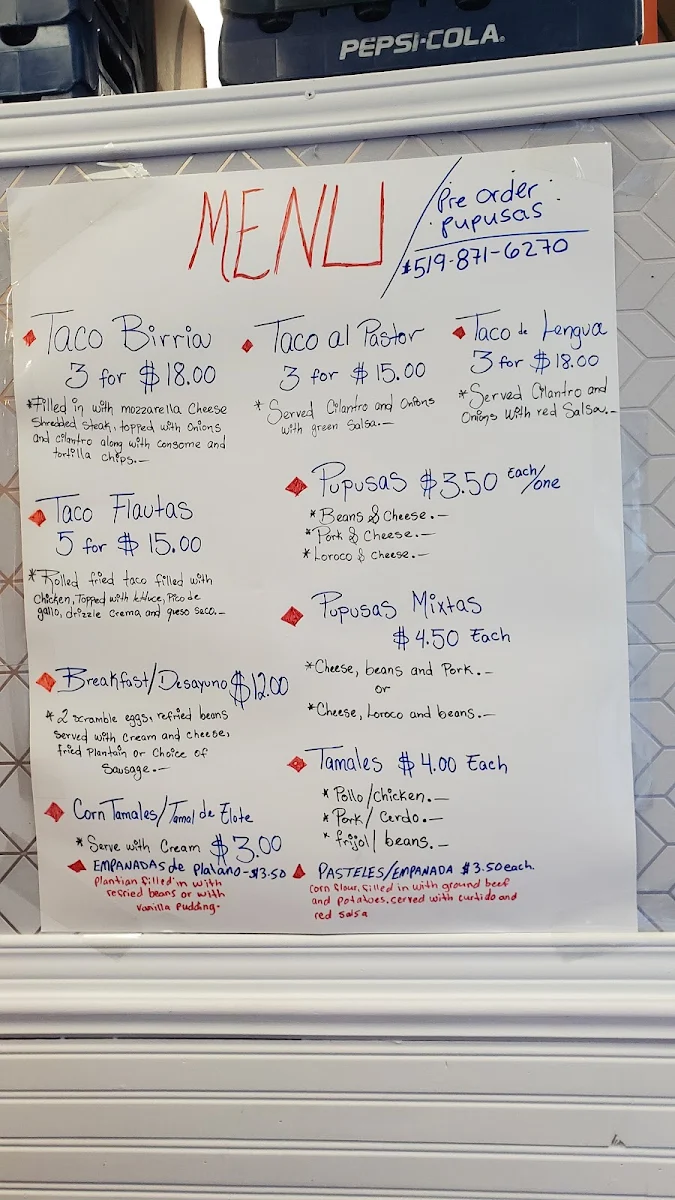 PEPSI-COLA
MENU
Pre order:
pupusas
519-871-6270
Taco Birria
3 for $18.00
*Filled in with mozzarella Cheese
Shredded steak, topped with onions
and cilantro along with consome and
tortilla chips.—
Taco al Pastor
3 for $15.00
* Served Cilantro and Onions
with green Salsa.—
Taco de Lengua
3 for $18.00
* Served Cilantro and
Onions with red Salsa.—
Taco Flautas
5 for $15.00
* Rolled fried taco filled with
chicken, Topped with lettuce, Pico de
gallo, drizzle crema and queso seco.—
Pupusas $3.50 Each/one
* Beans & Cheese.—
* Pork & Cheese.—
* Loroco & cheese.—
Pupusas Mixtas
$4.50 Each
* Cheese, beans and Pork.—
or
* Cheese, Loroco and beans.—
Breakfast/Desayuno $12.00
* 2 scramble eggs, refried beans
served with cream and cheese,
fried Plantain or Choice of
Sausage.—
Tamales $4.00 Each
* Pollo/chicken.—
* Pork/Cerdo.—
* frijol/beans.—
Corn Tamales/Tamal de Elote
* Serve with Cream $3.00
EMPANADAS de Platano-$3.50
Plantian filled in with
refried beans or with
vanilla Pudding.
PASTELES/EMPANADA $3.50 each.
corn flour, filled in with ground beef
and potatoes, served with curtido and
red salsa